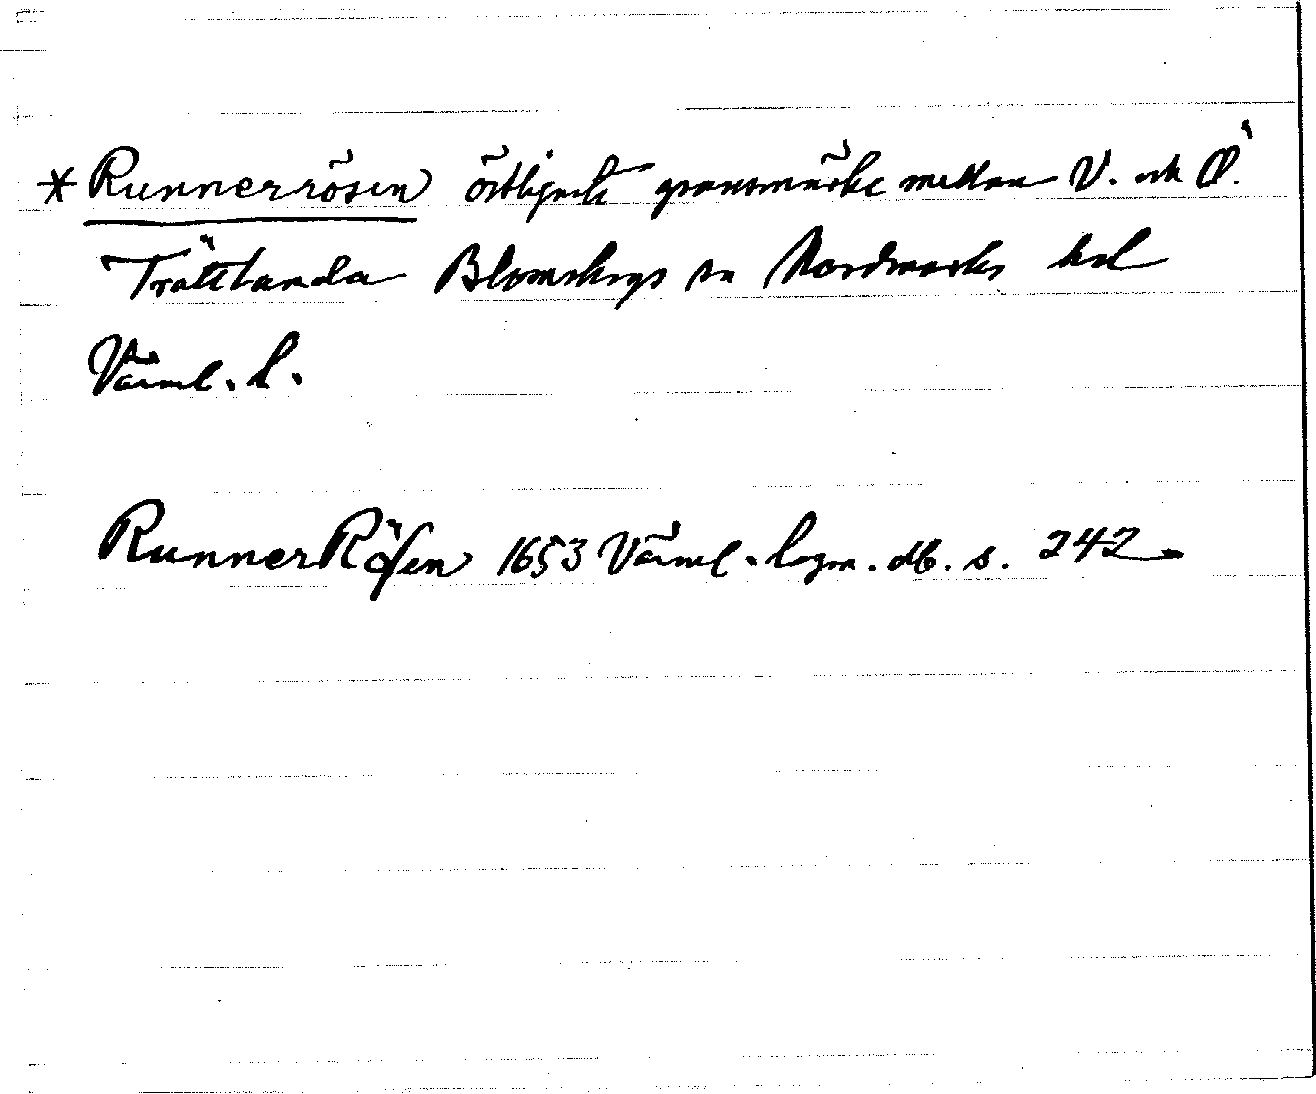 * Runnerrösen östligaste gränsmärke mellan V. och Ö.
Trättlanda Blomskogs sn Nordmarks hd
Värml. l.
RunnerRösen 1653 Värml. lagm. db. s. 242